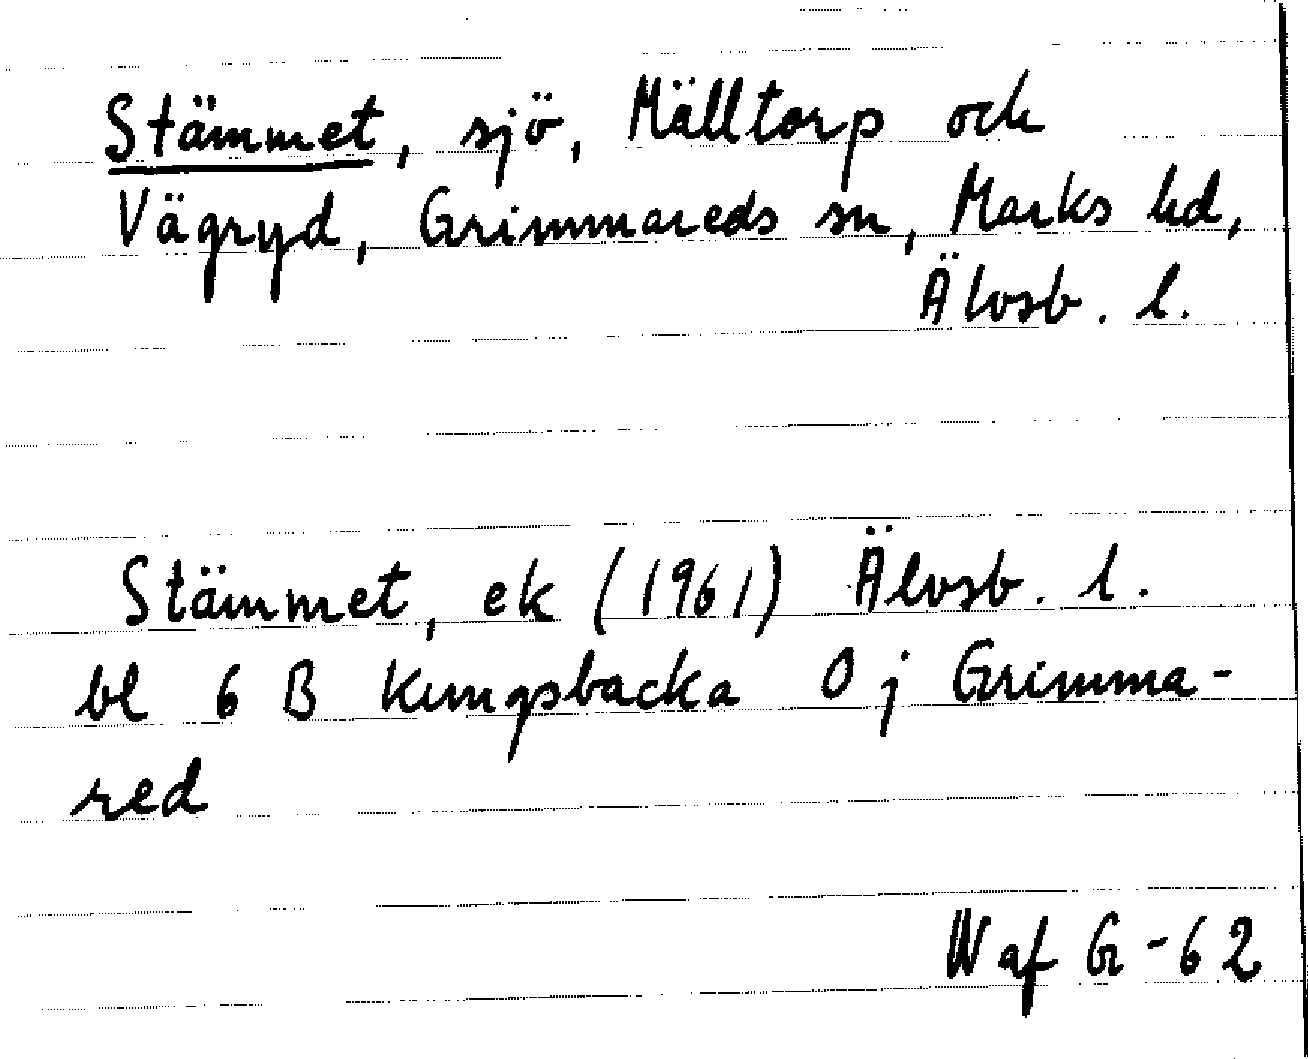 Stämmet, sjö, Mälltorp och
Vägryd, Grimmareds sn, Marks hd,
Älvsb. l.
Stämmet, ek (1961) Älvsb. l.
bl 6 B Kungsbacka O j Grimma-
red
W af G-62